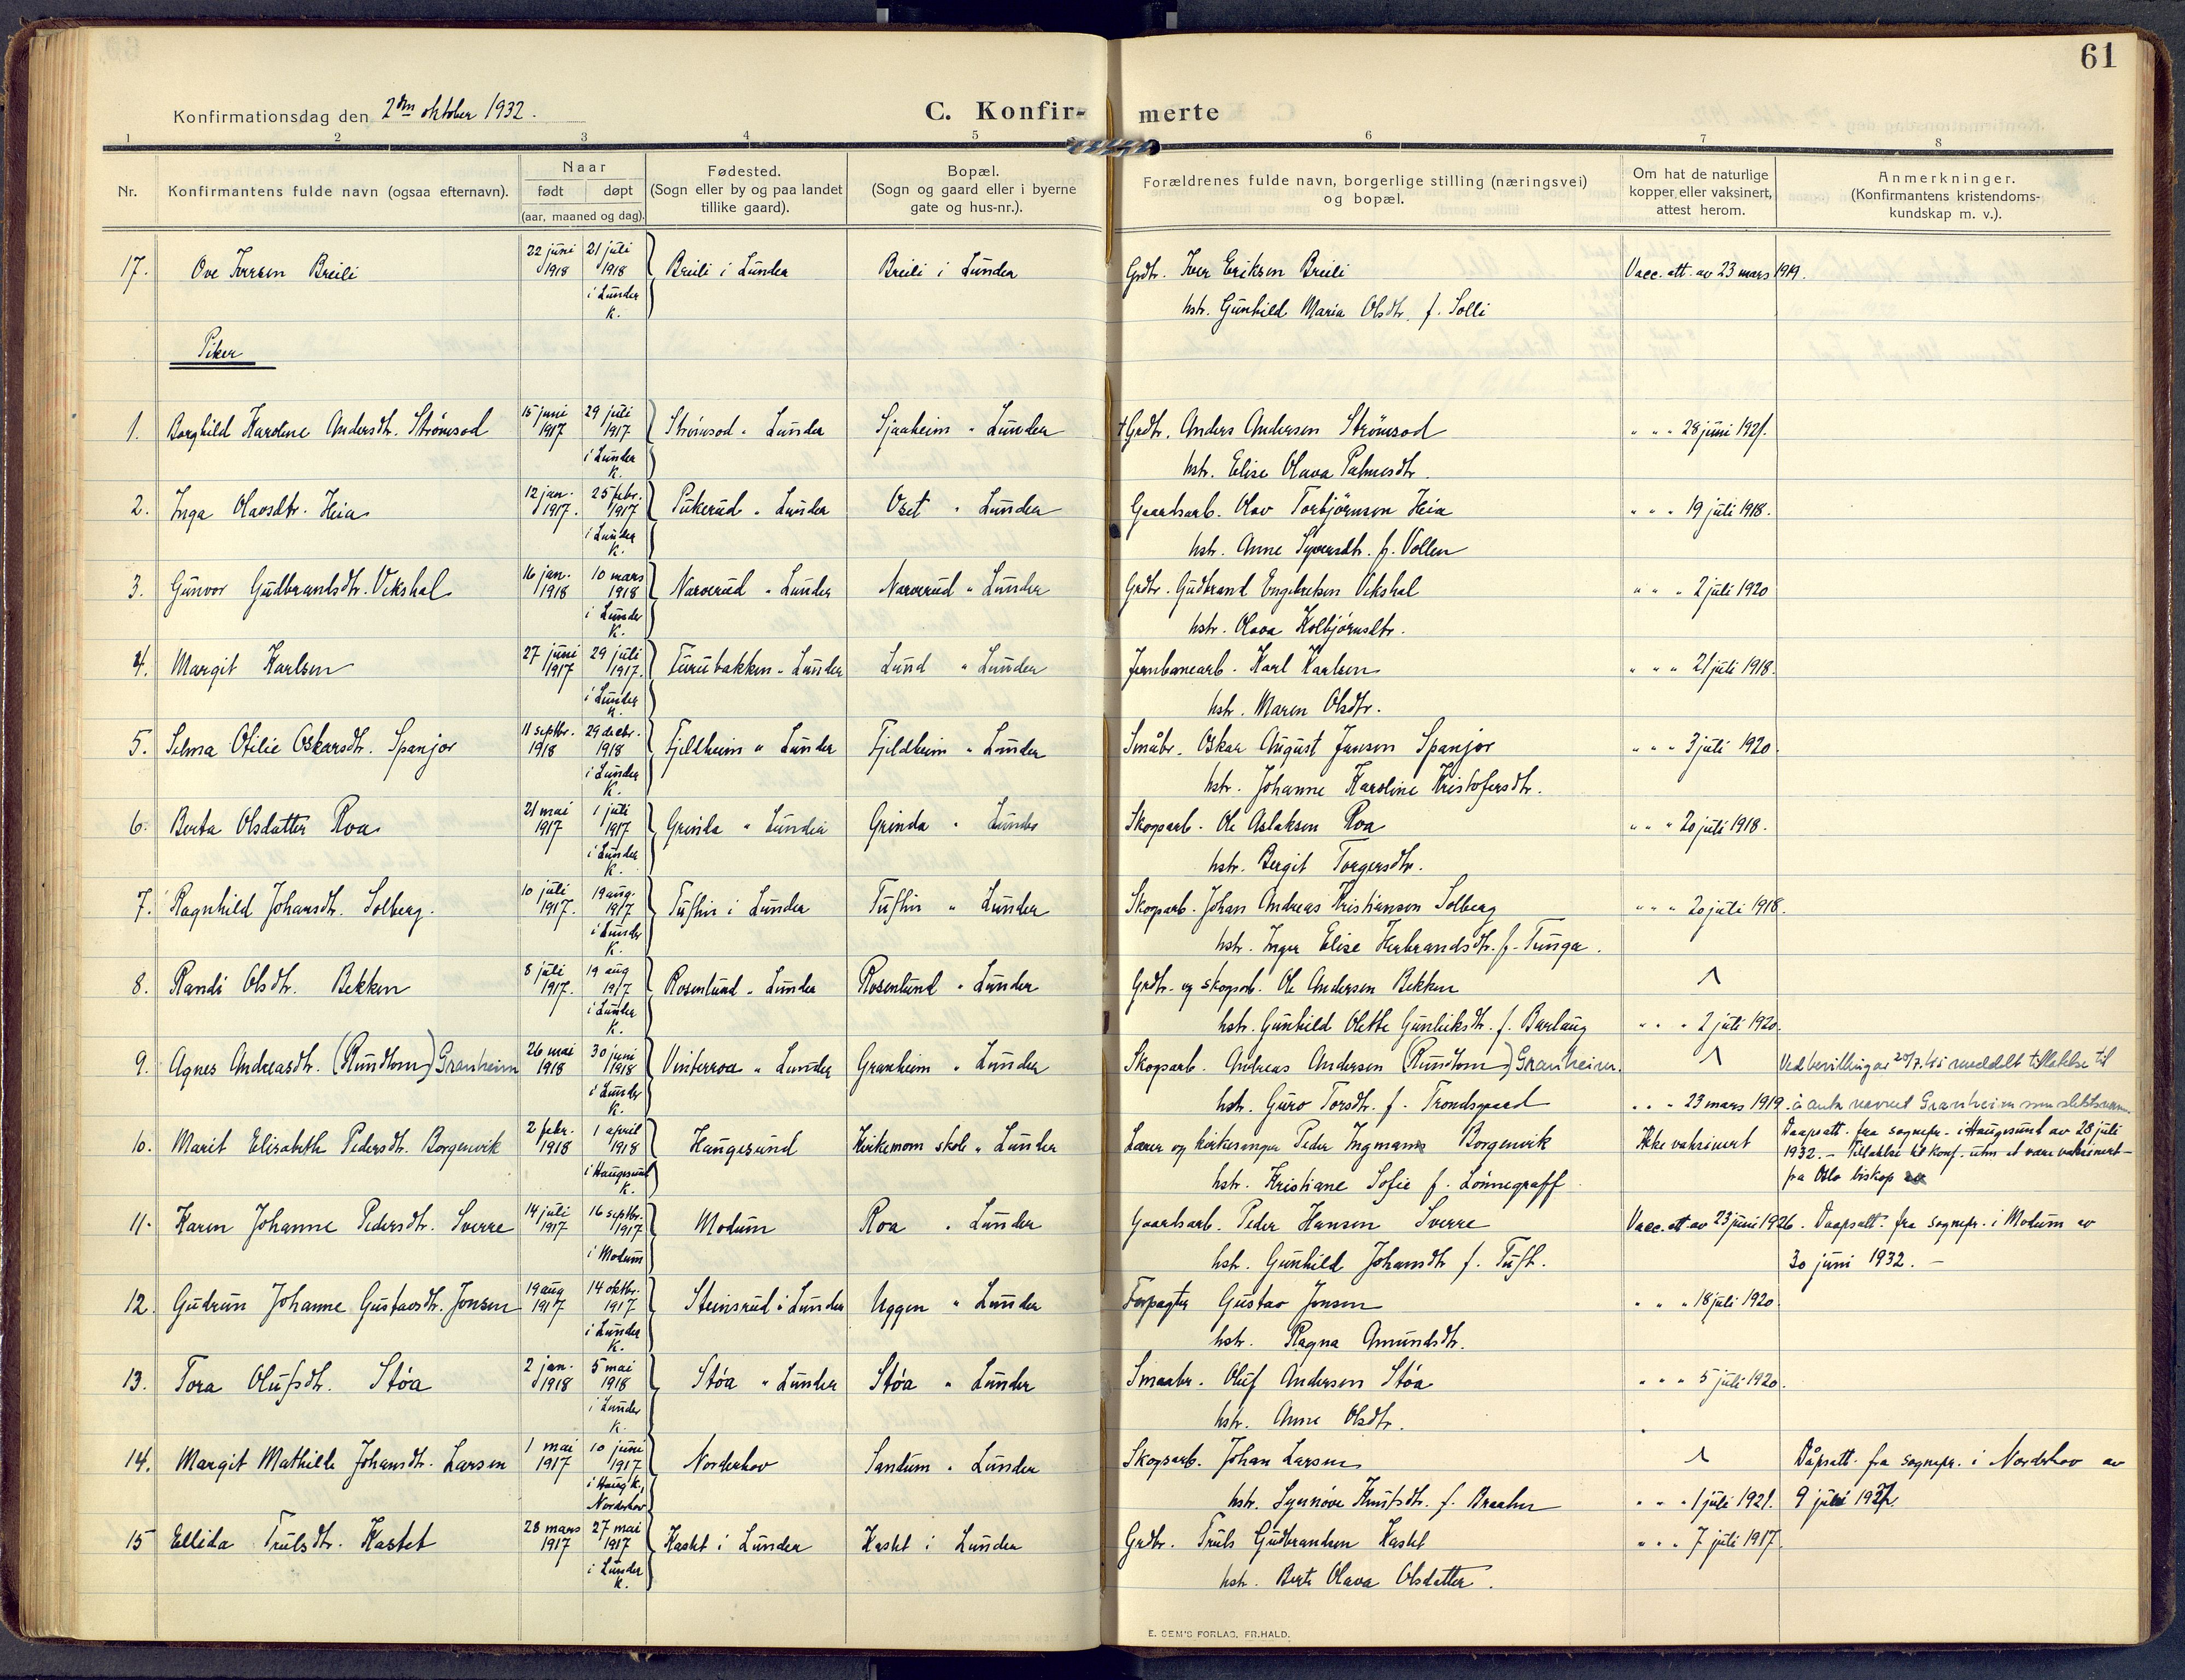 61
Konfirmationsdag den 2den oktober 1932.
C. Konfir- merte
1 2 3 4 5 6 7 8
Nr.
Konfirmantens fulde navn (ogsaa efternavn).
Naar
født døpt
(aar, maaned og dag).
Fødested.
(Sogn eller by og paa landet
tillike gaard).
Bopæl.
(Sogn og gaard eller i byerne
gate og hus-nr.).
Forældrenes fulde navn, borgerlige stilling (næringsvei)
og bopæl.
Om hat de naturlige
kopper eller vaksinert,
attest herom.
Anmerkninger.
(Konfirmantens kristendoms-
kundskap m. v.).
17. Ove Iversen Breili 22 juni 1918 21 juli 1918 i Lunder K. Breili i Lunder Breili i Lunder Grdbr. Iver Eriksen Breili Vacc. att. av 23 mars 1919.
hstr. Gunhild Maria Olsdtr. f. Solli
Piker
1. Borghild Karoline Andersdtr. Strømsod 15 juni 1917 29 juli 1917 i Lunder K. Strømsod " Lunder Sjaaheim " Lunder + Grdbr. Anders Andersen Strømsod " " " 28 juni 1921.
hstr. Elise Olava Palmesdtr.
2. Inga Olavsdtr. Heia 12 jan. 1917. 25 febr. 1917 i Lunder K. Pukerud " Lunder Oset " Lunder Gaardsarb. Olav Torbjørnsen Heia " " " 19 juli 1918.
hstr. Anne Syversdtr. f. Vollen
3. Gunvor Gudbrandsdtr. Vekshal 16 jan. 1918 10 mars 1918 i Lunder K. Narverud " Lunder Narverud " Lunder Grdbr. Gudbrand Engebretsen Vekshal " " " 2 juli 1920
hstr. Olava Kolbjørnsdtr.
4. Margit Karlsen 27 juni 1917 29 juli 1917. i Lunder K. Turubakken " Lunder Lund " Lunder Jernbanearb. Karl Karlsen " " " 21 juli 1918.
hstr. Maren Olsdtr.
5. Selma Otilie Oskarsdtr. Spanjor 11 septbr. 1918 29 decbr. 1918 i Lunder K. Fjeldheim " Lunder Fjeldheim " Lunder Småbr. Oskar August Jansen Spanjor " " " 3 juli 1920.
hstr. Johanne Karoline Kristofersdtr.
6. Berta Olsdatter Roa 21 mai 1917 1 juli 1917 i Lunder K. Grinda " Lunder Grinda " Lunder Skogsarb. Ole Aslaksen Roa " " " 20 juli 1918.
hstr. Bergit Torgersdtr.
7. Ragnhild Johansdtr. Solberg. 10 juli 1917. 19 aug. 1917 i Lunder K. Tuftin i Lunder Tuftin " Lunder Skogsarb. Johan Andreas Kristiansen Solberg " " " 20 juli 1918.
hstr. Inger Elise Herbrandsdtr. f. Tunga.
8. Randi Olsdtr. Bekken 8 juli 1917. 19 aug 1917 i Lunder K. Rosenlund " Lunder Rosenlund " Lunder Grdbr. og skogsarb. Ole Andersen Bekken
hstr. Gunhild Olette Gunleiksdtr. f. Barlaug " " " 2 juli 1920.
9. Agnes Andreasdtr. (Rundtom) Granheim 26 mai 1918 30 juni 1918 i Lunder K. Vinterroa " Lunder Granheim " Lunder Skogsarb. Andreas Andersen (Rundtom) Granheim. Ved bevilling av meddelt tillatelse til
hstr. Guro Torsdtr. f. Trondsgaard " " " 23 mars 1919. å anta navnet Granheim som slektsnavn
10. Marit Elisabeth Pedersdtr. Borgenvik 2 febr. 1918 1 april 1918 i Haugesund K. Haugesund Kirkemom skole " Lunder Lærer og kirkesanger Peder Ingmann Borgenvik Ikke vaksinert Daapsatt. fra sognepr. i Haugesund av 28 juli
1932. – Tillatelse til konf. uten at være vaksinert –
hstr. Kristiane Sofie f. Lønnegraff fra Oslo biskop
11. Karen Johanne Pedersdtr. Sverre 14 juli 1917 16 septbr. 1917 i Modum Modum Roa " Lunder Gaardsarb. Peder Hansen Sverre Vacc. att. av 23 juni 1926. Daapsatt. fra sognepr. i Modum av
hstr. Gunhild Johansdtr f. Tuft. 30 juni 1932. –
12. Gudrun Johanne Gustavsdtr. Jonsen 19 aug 1917 14 oktbr. 1917 i Lunder K. Steinsrud i Lunder Uggen " Lunder Forpagter Gustav Jonsen " " " 18 juli 1920.
hstr. Ragna Amundsdtr.
13. Tora Olufsdtr. Støa 2 jan. 1918 5 mai 1918 i Lunder K. Støa " Lunder Støa " Lunder Smaabr. Oluf Andersen Støa " " " 5 juli 1920.
hstr. Anne Olsdtr.
14. Margit Mathilde Johansdtr. Larsen 1 mai 1917 10 juni 1917 i Haug K., Norderhov Norderhov Sandum " Lunder Skogsarb. Johan Larsen Dåpsatt. fra sognepr. i Norderhov av
hstr. Synnøve Knutsdtr. f. Braaten " " " 1 juli 1921. 9 juli
15 Ellida Trulsdtr. Kastet 28 mars 1917 27 mai 1917 i Lunder K. Kastet i Lunder Kastet i Lunder Grdbr. Truls Gudbrandsen Kastet " " " 7 juli 1917.
hstr. Berte Olava Olsdatter.
E. SEM'S FORLAG, FR.HALD.